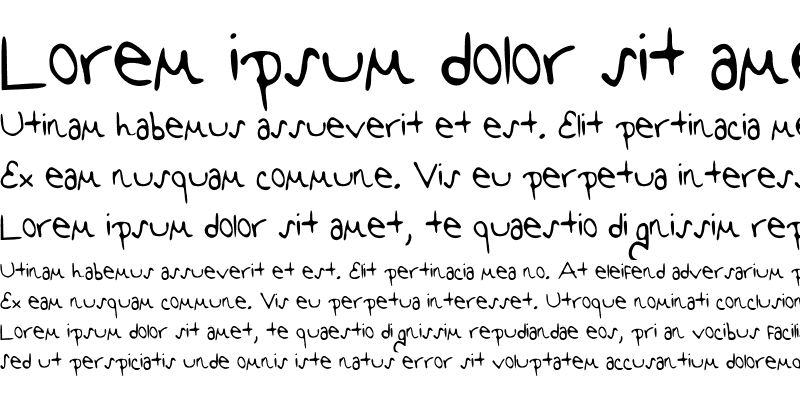 Lorem ipsum dolor sit ame
Utinam habemus assueverit et est. Elit pertinacia me
Ex eam nusquam commune. Vis eu perpetua interess
Lorem ipsum dolor sit amet, te quaestio dignissim rep
Utinam habemus assueverit et est. Elit pertinacia mea no. At eleifend adversarium p
Ex eam nusquam commune. Vis eu perpetua interesset. Utroque nominati conclusion
Lorem ipsum dolor sit amet, te quaestio dignissim repudiandae eos, pri an vocibus facili
Sed ut perspiciatis unde omnis iste natus error sit voluptatem accusantium doloremq